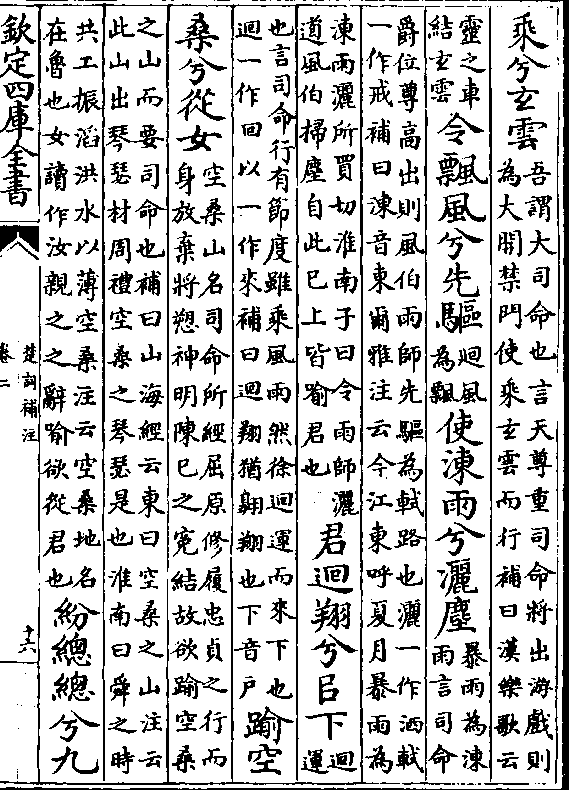 乘兮玄雲吾謂大司命也言天尊重司命將出游戲則為大開禁門使乘玄雲而行補曰漢樂歌云
靈之車結玄雲令飄風兮先驅廻風為飄使涷雨兮灑塵暴雨為涷雨言司命
爵位尊高出則風伯雨師先驅為軾路也灑一作洒軾一作戒補曰涷音東爾雅注云今江東呼夏月暴雨為
涷雨灑所買切淮南子曰令雨師灑道風伯掃塵自此已上皆喻君也君迴翔兮㠯下迴運
也言司命行有節度雖乘風雨然徐迴運而來下也迴一作回以一作來補曰迴翔猶翺翔也下音戶踰空
桑兮從女空桑山名司命所經屈原修履忠貞之行而身放棄將愬神明陳已之寃結故欲踰空桑
之山而要司命也補曰山海經云東曰空桑之山注云此山出琴瑟材周禮空桑之琴瑟是也淮南曰舜之時
共工振滔洪水以薄空桑注云空桑地名在魯也女讀作汝親之之辭喻欲從君也紛總總兮九
欽定四庫全書
楚詞補注
卷二
十六